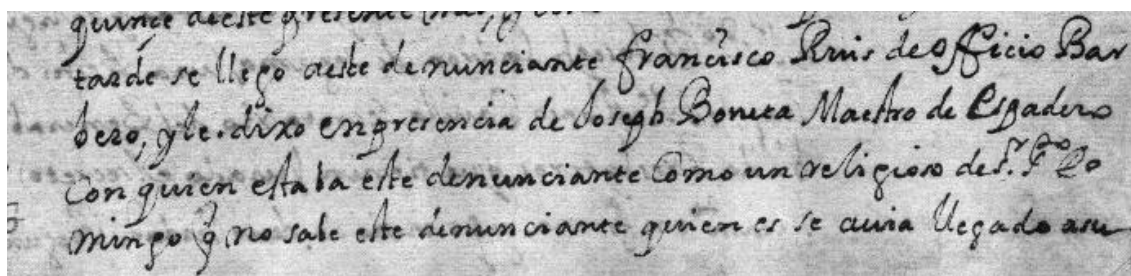 quinçe deeste presente mes, y como
tarde se llego aeste denunciante françisco Ruis de officio Bar
bero, yle dixo en presencia de Joseph Boneta Maestro de Espadero
Con quien estaba este denunciante Como un religioso de Sr Sto Do
mingo q no sabe este denunciante quien es se auia llegado asu